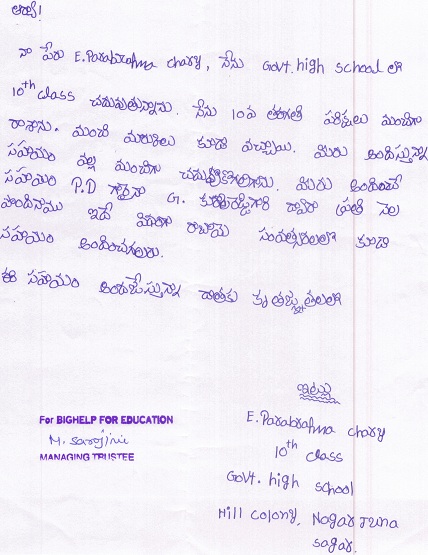 ఆర్యా!
నా పేరు E. Parabrahma chary, నేను Govt. high school లో
10th class చదువుతున్నాను. నేను 10వ తరగతి పరీక్షలు మంచిగా
రాశాను. మంచి మార్కులు కూడా వచ్చాయి. మీరు అందిస్తున్న
సహాయం వల్ల మంచిగా చదువుకోగలిగాను. మీరు అందించే
సహాయం P.D గారైన G. ద్వారా ప్రతి నెల
పొందినాము ఇదే విధంగా రాబోయే సంవత్సరాలలో కూడా
సహాయం అందించగలరు.
ఈ సహాయం అందజేస్తున్న దాతకు కృతజ్ఞతలతో
ఇట్లు
E. Parabrahma chary
10th class
Govt. high school
Hill colony, Nagar Juna
sagar.
For BIGHELP FOR EDUCATION
M. Sarojini
MANAGING TRUSTEE